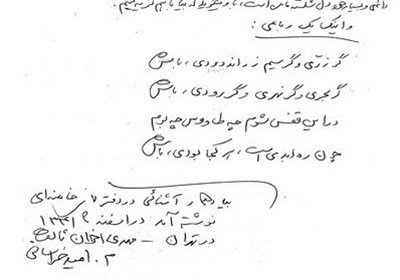 و اینک یک رباعی:
گر زرّی و گر سیم زراندودی، باش
گر بحری و گر نهری و گر رودی، باش
در این قفس شوم چه طاووس چه بوم
چون ره ابدی است، هر کجا بودی، باش
بیادگار آشنائی در دفتر خامنه‌ای
نوشته آمد در اسفند ۱۳۴۱
در تهران – مهدی اخوان ثالث
م. امید خراسانی